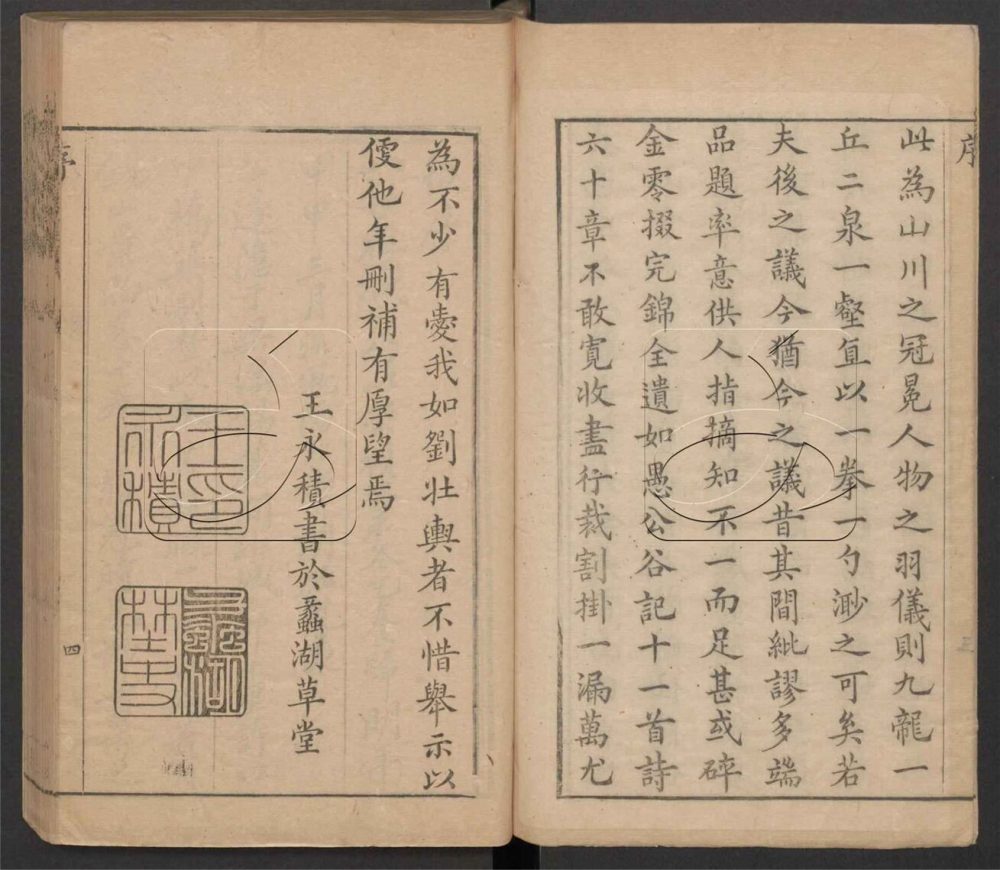 序
此為山川之冠冕人物之羽儀則九龍一
丘二泉一壑直以一拳一勺渺之可矣若
夫後之議今猶今之議昔其間紕謬多端
品題率意供人指摘知不一而足甚或碎
金零掇完錦全遺如愚公谷記十一首詩
六十章不敢寬收盡行裁割掛一漏萬尤
為不少有愛我如劉壯輿者不惜舉示以
便他年刪補有厚望焉
王永積書於蠡湖草堂
王印永積
蠡湖埜史
序
四